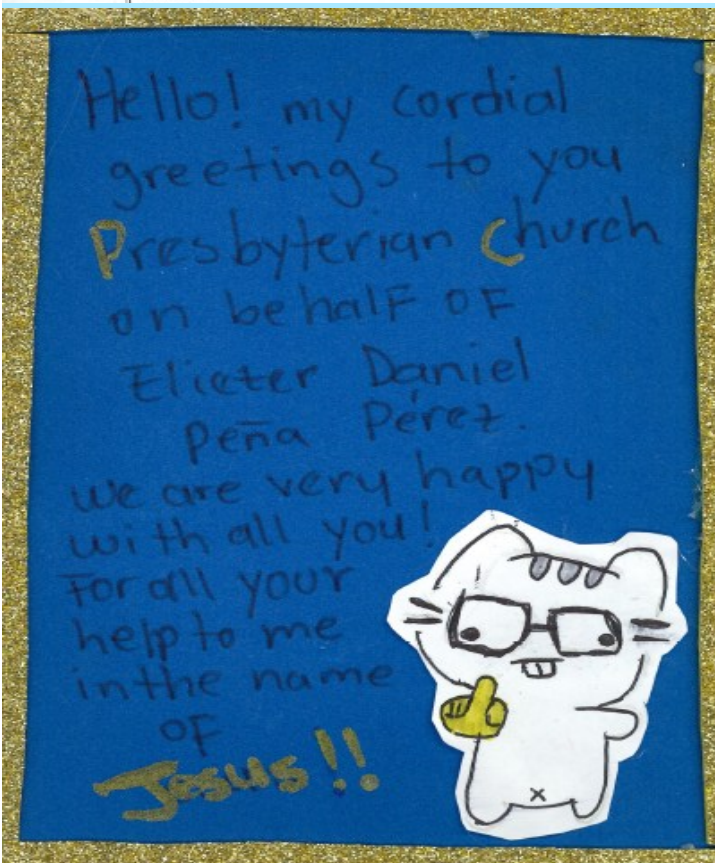 Hello! my cordial
greetings to you
Presbyterian Church
on behalf of
Elieter Daniel
Peña Pérez.
we are very happy
with all you!
For all your
help to me
in the name
of
Jesus!!